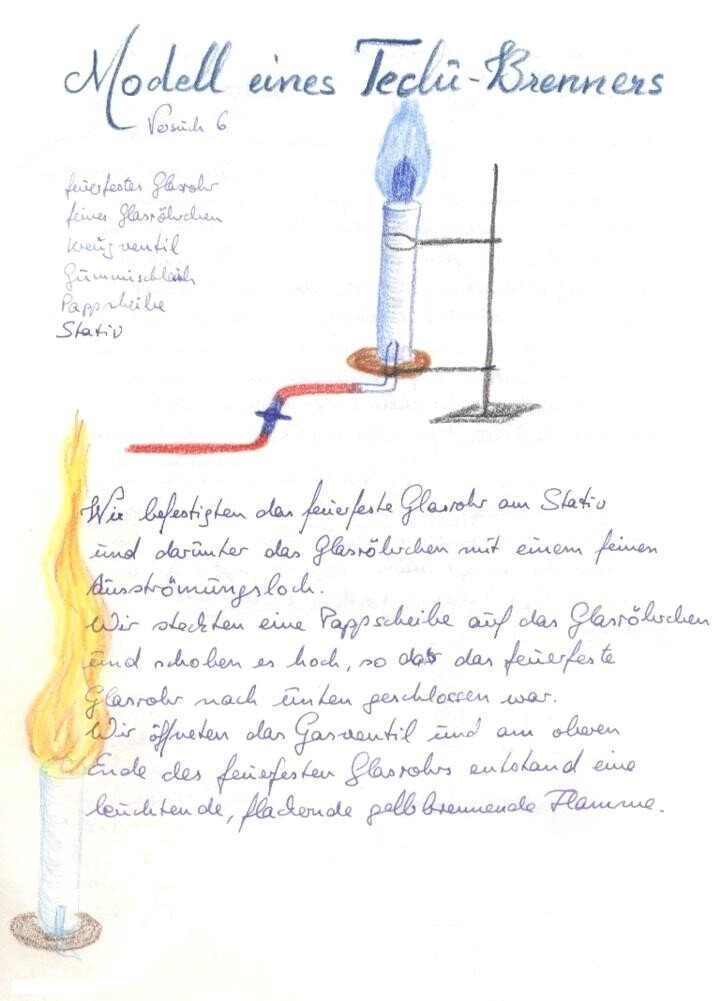 Modell eines Teclu-Brenners
Versuch 6
feuerfestes Glasrohr
feines Glasröhrchen
Kreuzventil
Gummischlauch
Pappscheibe
Stativ
Wir befestigten das feuerfeste Glasrohr am Stativ
und darunter das Glasröhrchen mit einem feinen
Ausströmungsloch.
Wir steckten eine Pappscheibe auf das Glasröhrchen
und schoben es hoch, so daß das feuerfeste
Glasrohr nach unten geschlossen war.
Wir öffneten das Gasventil und am oberen
Ende des feuerfesten Glasrohrs entstand eine
leuchtende, flackernde gelbbrennende Flamme.